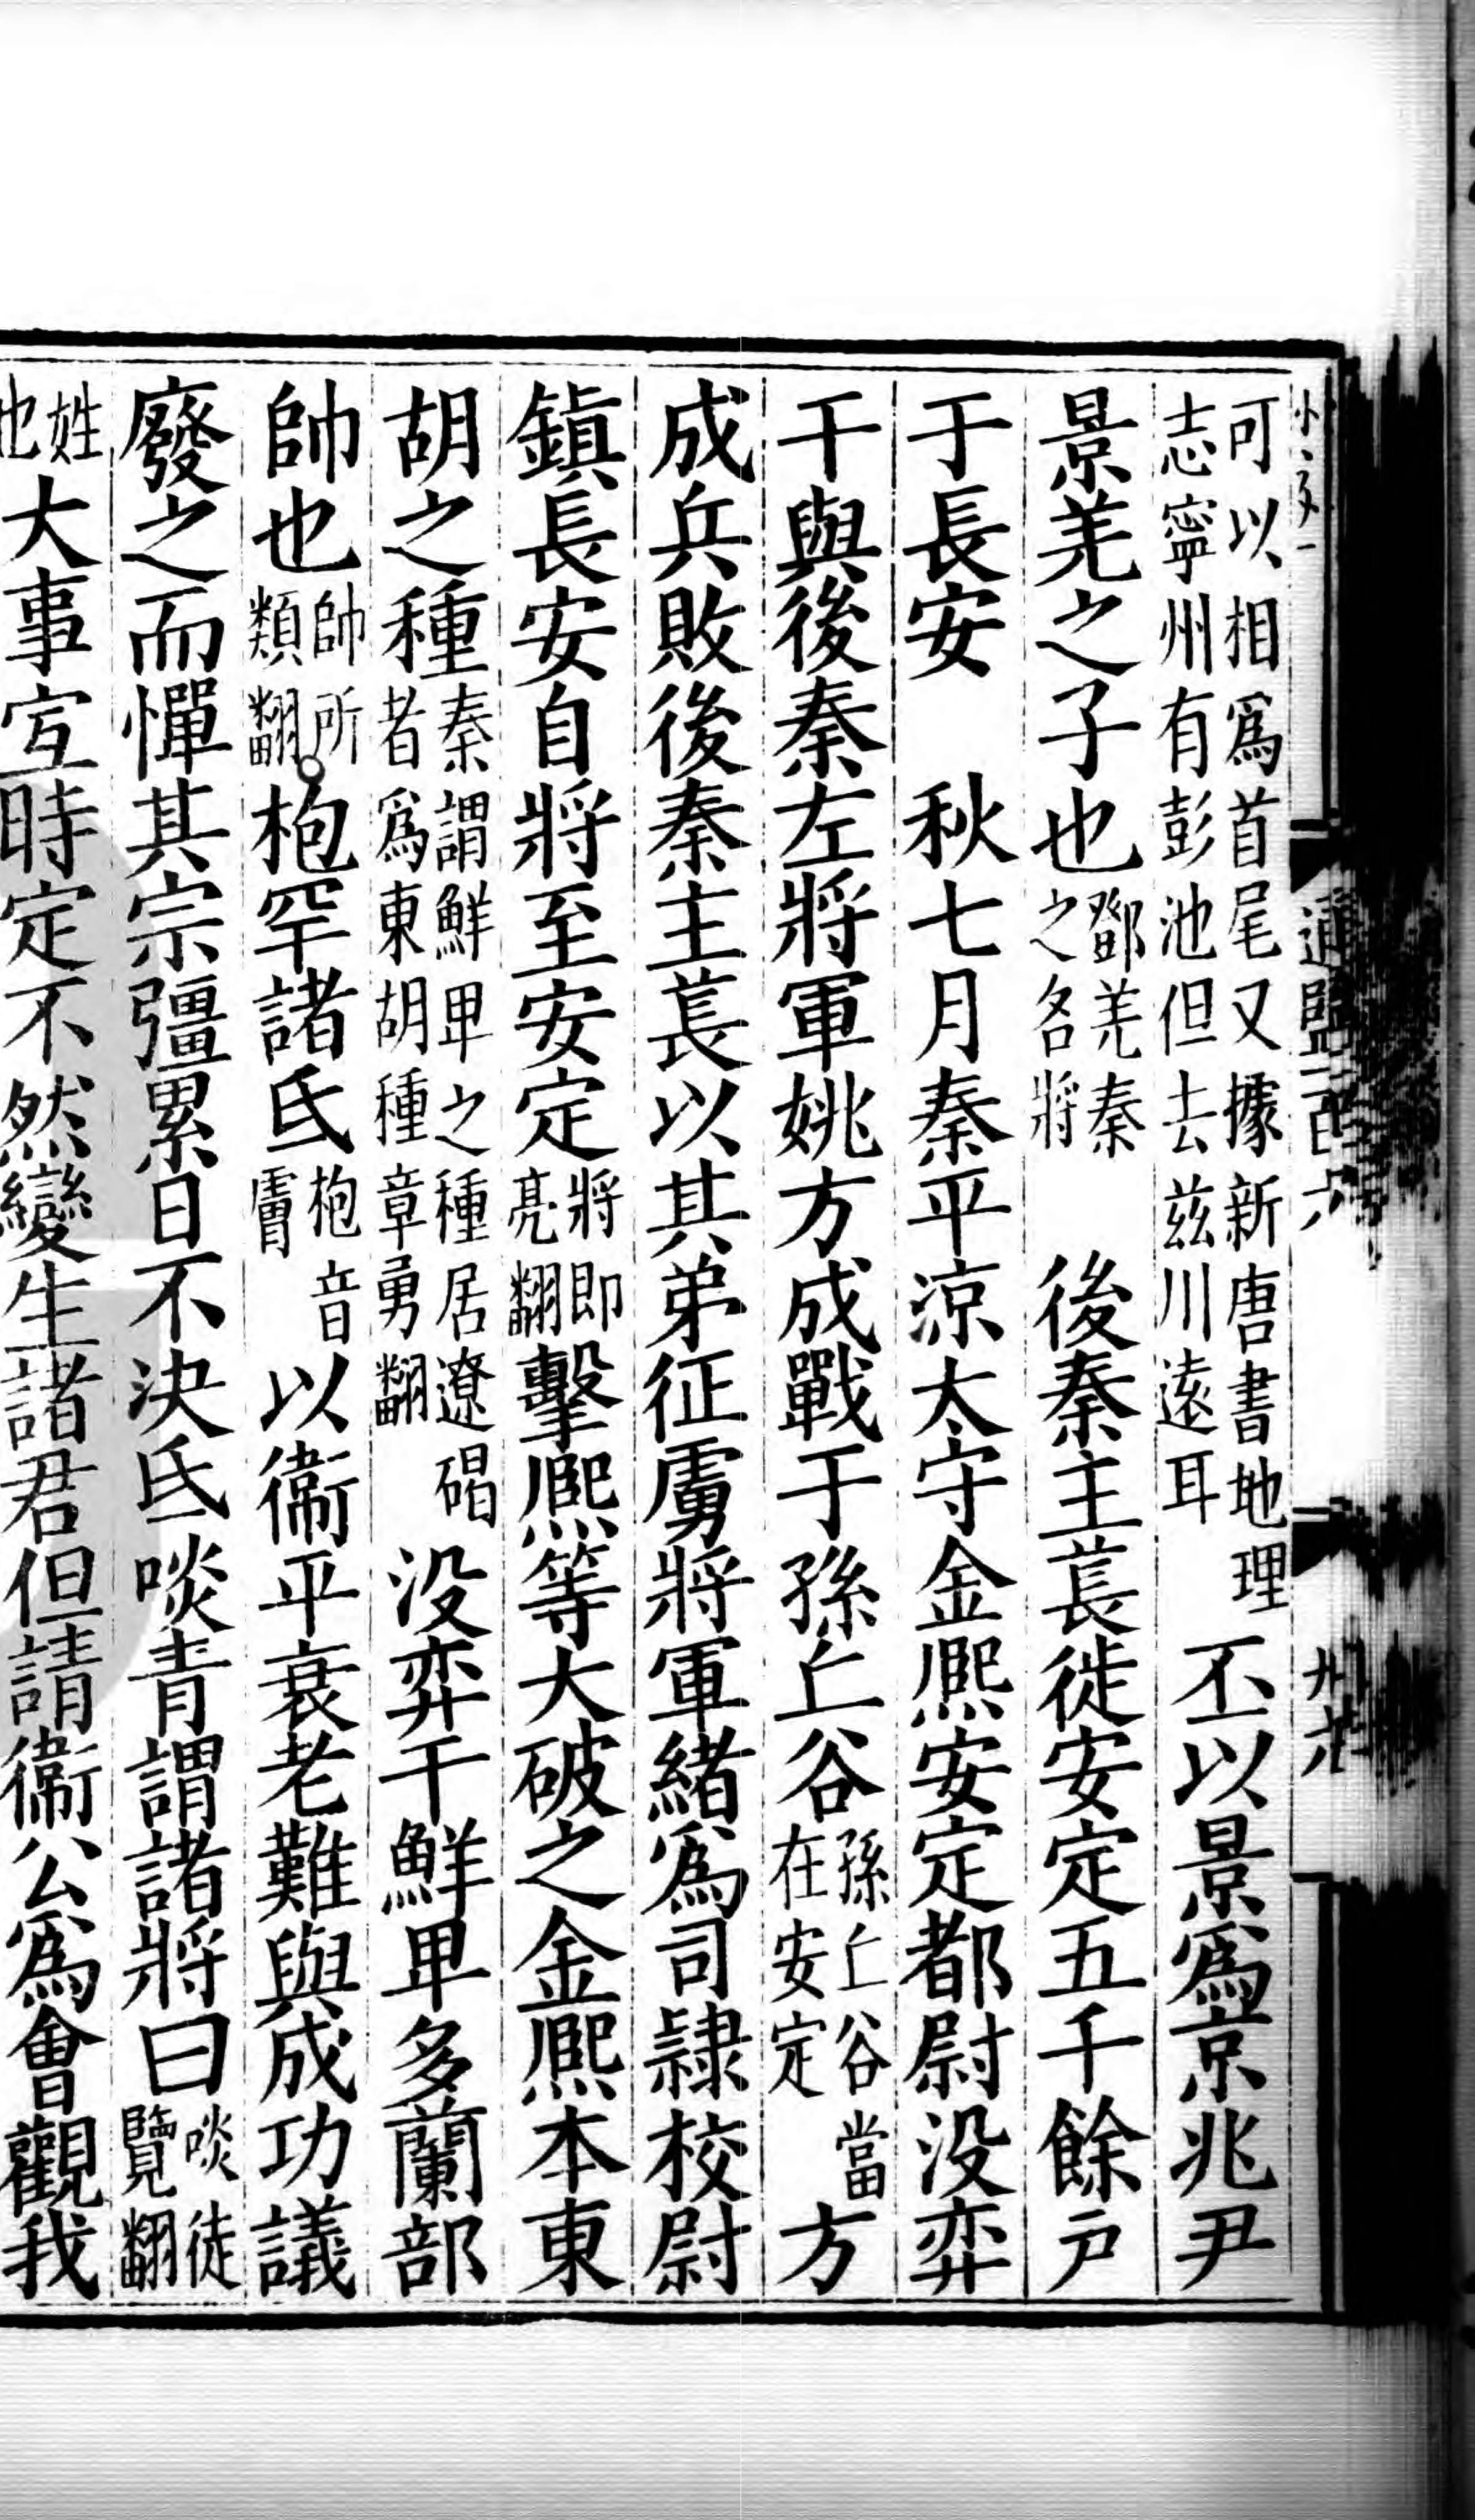 可以相爲首尾又據新唐書地理
志寧州有彭池但去茲川遠耳
丕以景爲京兆尹
景羌之子也
鄧羌秦
之名將
後秦主萇徙安定五千餘戶
于長安　秋七月秦平涼太守金熈安定都尉没弈
干與後秦左將軍姚方成戰于孫丘谷
孫丘谷當
在安定
方
成兵敗後秦主萇以其弟征虜將軍緒爲司隷校尉
鎮長安自將至安定
將即
亮翻
擊熈等大破之金熈本東
胡之種
秦謂鮮卑之種居遼碣
者爲東胡種章勇翻
没弈干鮮卑多蘭部
帥也
帥所
類翻
枹罕諸氐
枹音
膚
以衞平衰老難與成功議
廢之而憚其宗彊累日不決氐啖青謂諸將曰
啖徒
覽翻
姓
也
大事宜時定不然變生諸君但請衞公爲會觀我
通鑑一百六